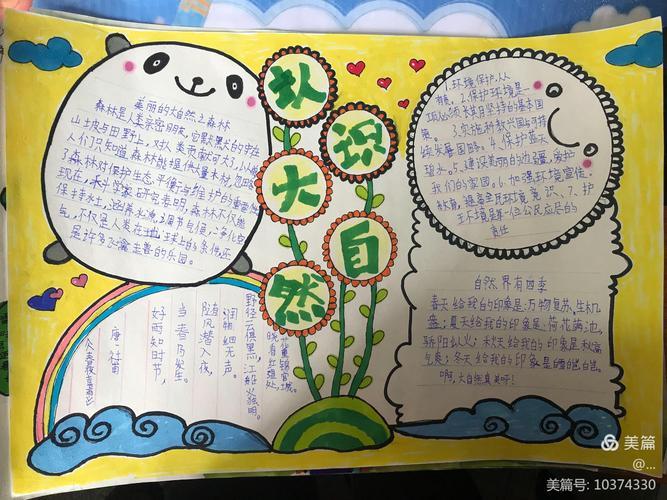 认识大自然
美丽的大自然之森林
森林是人类亲密朋友,它默默
山土坡与田野上,对人类贡献可大了,
人们只知道森林能提供大量木材,忽略
了森林对保护生态平衡与维护的重要作
现在,科学家研究表明,森林不仅能
保持水土,涵养水流,调节气候,净化空
气,不仅是人类在地球上的条件,还
是许多飞禽走兽的乐园。
1.环境保护,从
2.保护环境是
一项必须长期坚持的基本国
策。3.实施科教兴国与可持
续发展国略。4.保护蓝天
碧水。5.建设美丽的边疆,爱护
我们的家园。6.加强环境宣传
教育,提高全民环境意识、7.护
环境是每一位公民应尽的
责任
自然界有四季
春天给我的印象是:万物复苏,生机
盎;夏天给我的印象是:荷花满池,
骄阳似火;秋天给我的印象是秋高
气爽;冬天给我的印象是白雪皑皑。
啊,大自然真美呀!
春夜喜雨
唐·杜甫
好雨知时节,
当春乃发生。
随风潜入夜,
润物细无声。
野径云俱黑,江船火独明。
晓看红湿处,
花重锦官城。
美篇
@...
美篇号: 10374330